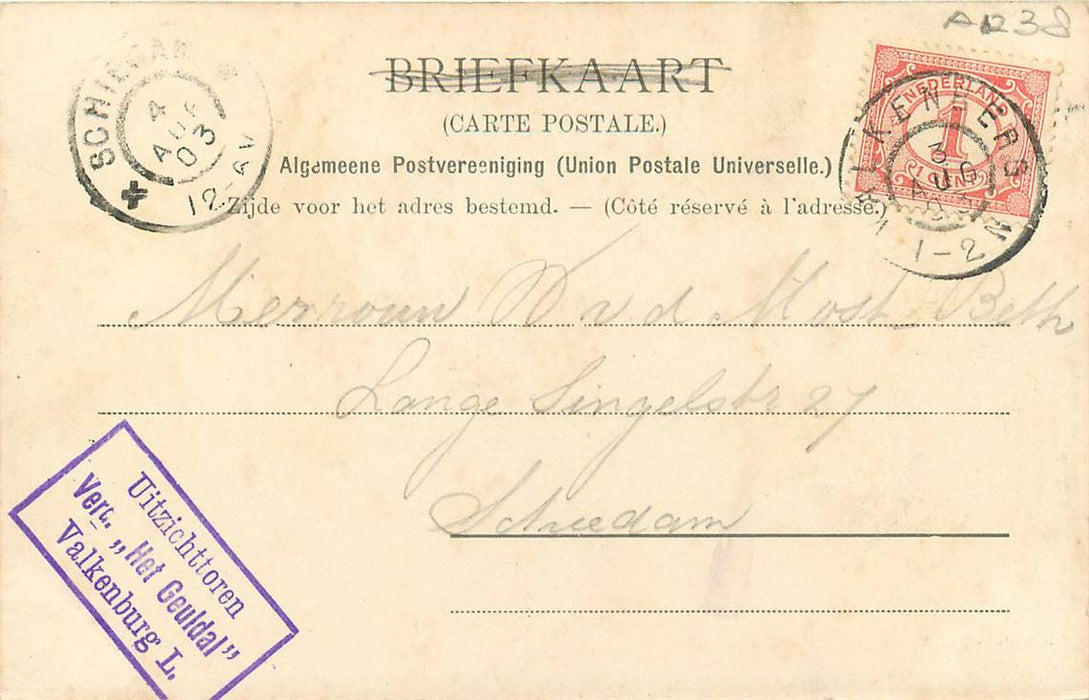 AR238
BRIEFKAART
(CARTE POSTALE.)
Algemeene Postvereeniging (Union Postale Universelle.)
Zijde voor het adres bestemd. — (Côté réservé à l'adresse.)
SCHIEDAM
4
AUG
03
12-AV
NEDERLAND
1
CENT
VALKENBERG
3
AUG
1-2N
Merrouw W v.d Most-Beth
Lange Singelstr 27
Schiedam
Uitzichttoren
Verg. „Het Geuldal”
Valkenburg L.